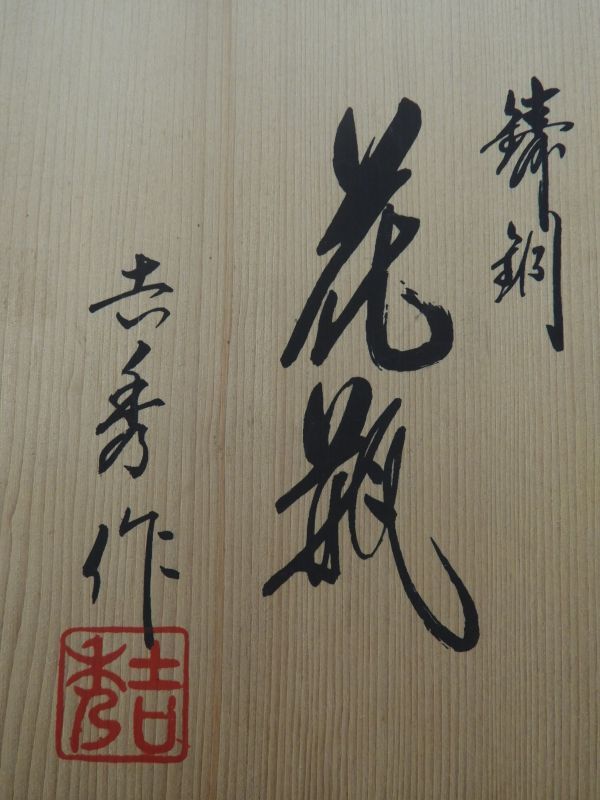 鋳銅
花瓶
吉秀作
吉秀